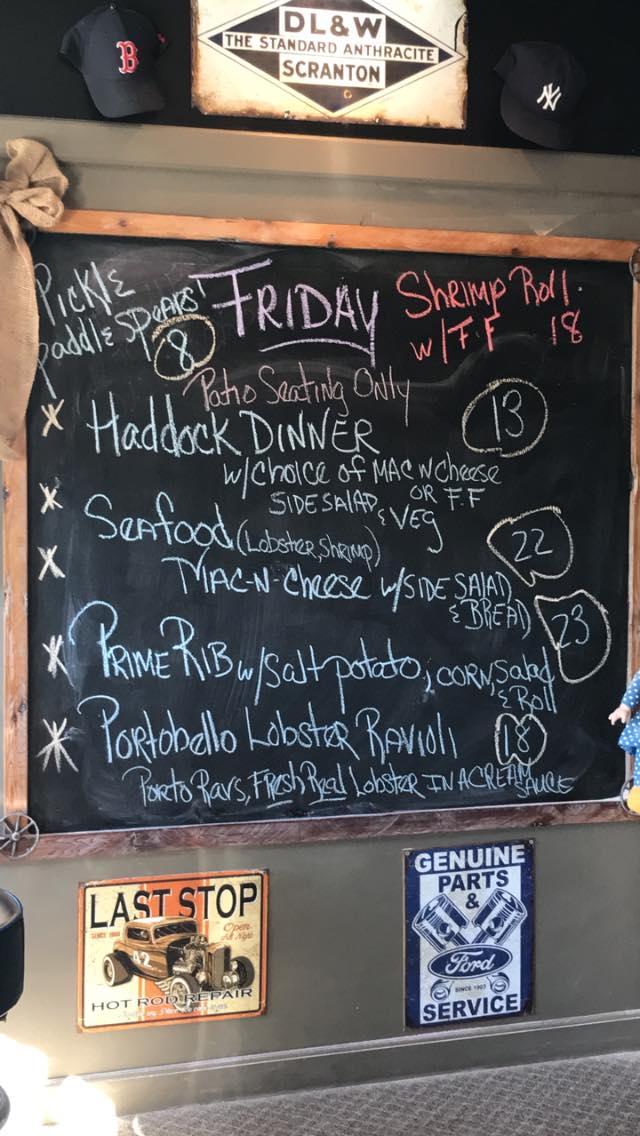 B
DL&W
THE STANDARD ANTHRACITE
SCRANTON
NY
PICKLE
PADDLE SPEARS
8
FRIDAY
Shrimp Roll
w/F.F 18
Patio Seating Only
HADDOCK DINNER 13
w/choice of MAC N CHEESE
OR F.F
SIDE SALAD & VEG
SEAFOOD (Lobster, Shrimp) 22
MAC-N-CHEESE w/SIDE SALAD
& BREAD
PRIME RIB w/Salt potato, CORN, Salad 23
& Roll
Portobello Lobster Ravioli 18
Porto Ravs, Fresh Real Lobster IN A CREAM SAUCE
LAST STOP
SINCE
Open
All Night
42
HOT ROD REPAIR
GENUINE
PARTS
&
Ford
SINCE 1903
SERVICE